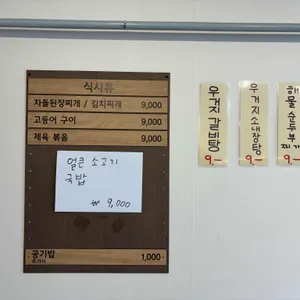 식사류
차돌된장찌개 / 김치찌개 9,000
고등어 구이 9,000
제육 볶음 9,000
얼큰 소고기
국밥
₩ 9,000
공기밥 1,000
추가시
우거지갈비탕
9.-
우거지소내장탕
9.-
해물순두부찌개
9.-